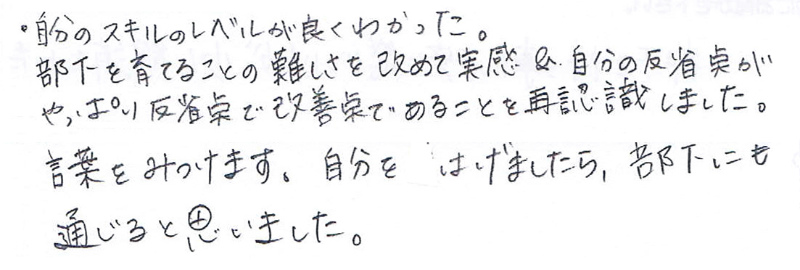 ・自分のスキルのレベルが良くわかった。
部下を育てることの難しさを改めて実感 & 自分の反省点が
やっぱり反省点で改善点であることを再認識しました。
言葉をみつけます。自分を はげましたら, 部下にも
通じると思いました。